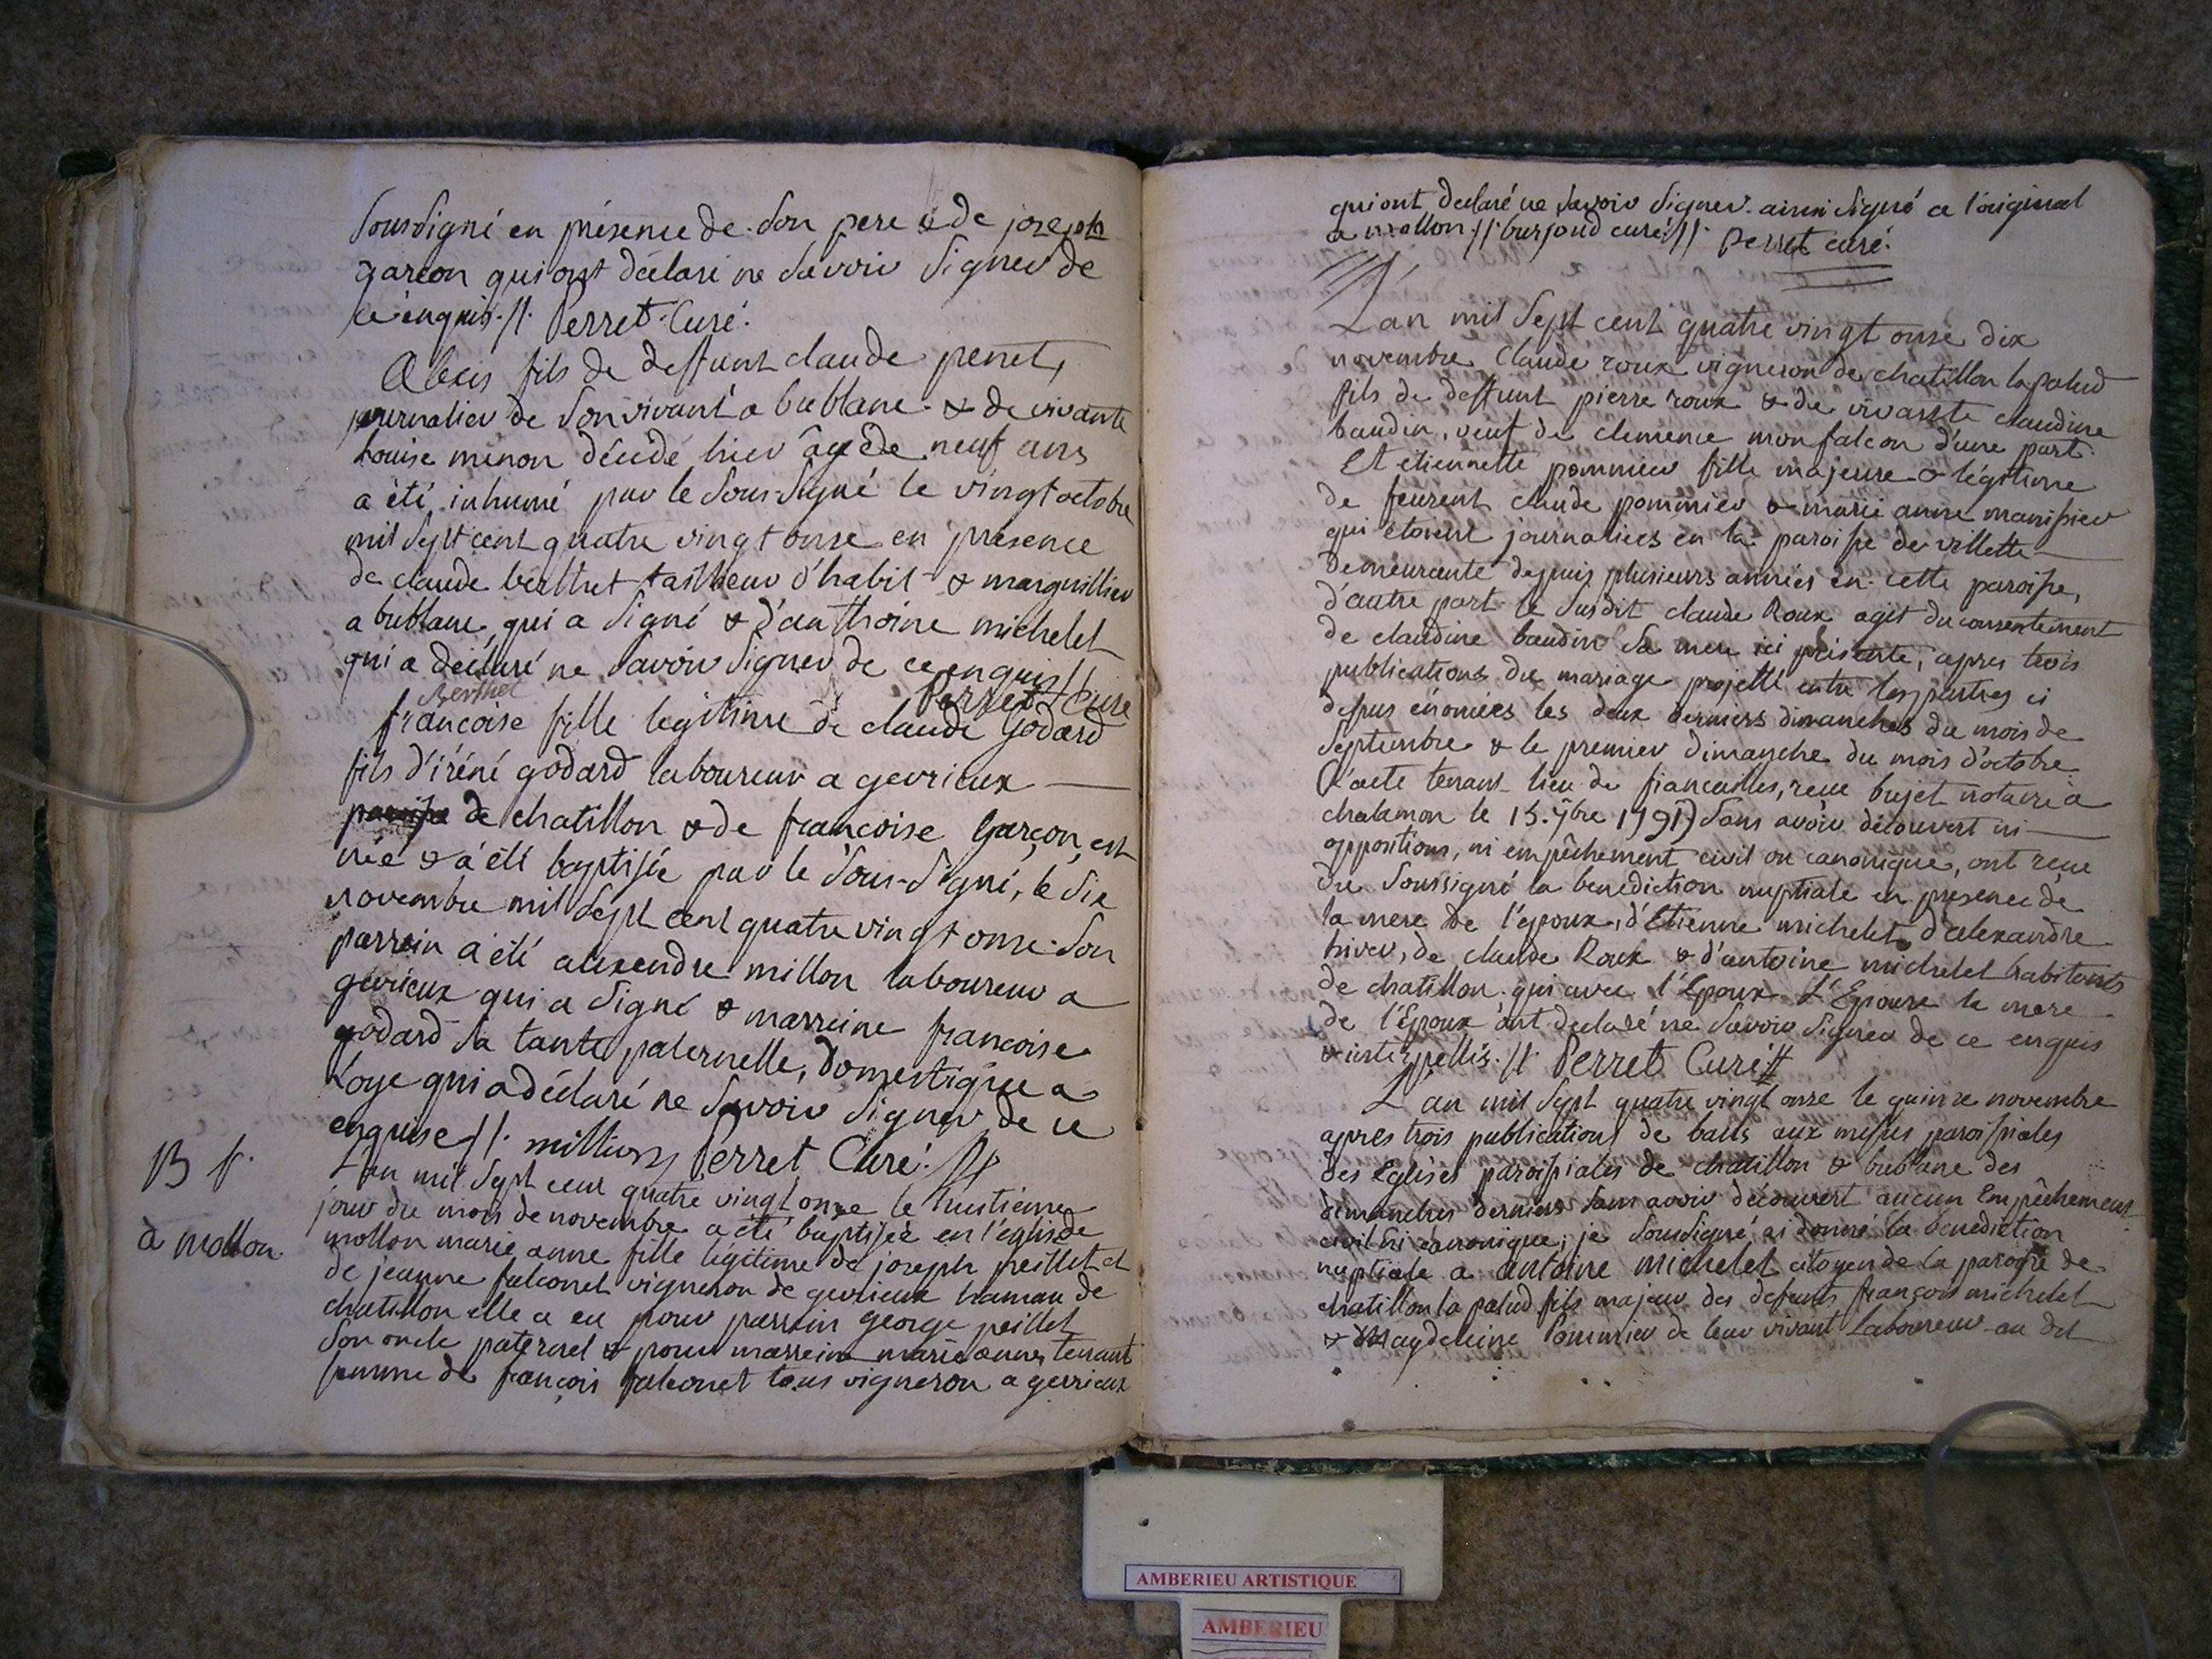 Soussigné en présence de son pere & de joseph
garcon qui ont déclaré ne Savoir Signer de
ce enquis .//. Perret Curé.
Alexis fils de deffunt claude penet,
journalier de son vivant a bublane & de vivante
Louise menon décédé hier âgé de neuf ans
a été inhumé par le Sous-Signé le vingt octobre
mil Sept cent quatre vingt onze en presence
de claude berthet tailleur d'habit & marguillier
a bublane, qui a Signé & d'anthoine michelet
qui a déclaré ne Savoir Signer de ce enquis //
Berthet Perret Curé
francoise fille legitime de claude Godard
fils d'iréné godard laboureur a gevrieux
paroisse de chatillon & de francoise Garçon, est
née & a été baptisée par le Sous-Signé, le Six
novembre mil Sept cent quatre vingt onze. Son
parrein a été alexendre millon laboureur a
gevrieux qui a Signé & marreine francoise
godard sa tante paternelle, domestique a
Loye qui a déclaré ne Savoir Signer de ce
enquise //. million Perret Curé.
B f.
à mollon.
L'an mil Sept cent quatre vingt onze le huitieme
jour du mois de novembre a été baptisée en l'église de
mollon marie anne fille légitime de joseph peillet et
de jeanne falconet vigneron de gevrieux hamau de
chatillon elle a eu pour parrein george peillet
Son oncle paternel & pour marreine marie anne tenant
femme de françois falconet tous vigneron a gevrieux
qui ont déclaré ne Savoir Signer. ainsi Signé a l'original
a mollon .//. burjoud curé .//. Perret curé.
L'an mil Sept cent quatre vingt onze dix
novembre claude roux vigneron de chatillon la palud
fils de deffunt pierre roux & de vivante claudine
baudin, veuf de clemence monfalcon d'une part.
Et etiennette pommier fille majeure & légitime
de feurent claude pommier & marie anne manissier
qui étoient journaliers en la paroisse de villette
demeurante depuis plusieurs années en cette paroisse,
d'autre part. le Susdit claude Roux agit du consentement
de claudine baudin Sa mere ici présente, apres trois
publications du mariage projetté entre les parties ci
dessus énoncées les deux derniers dimanches du mois de
Septembre & le premier dimanche du mois d'octobre
(l'acte tenant lieu de fiancailles, reçu bujet notaire a
chalamon le 15. 7bre 1791) Sans avoir découvert ni
oppositions, ni empêchement civil ou canonique, ont reçue
du Soussigné la benediction nuptiale en presence de
la mere de l'époux, d'Etienne michelet d'alexandre
hiver, de claude Roux & d'antoine michelet habitants
de chatillon qui avec l'Epoux L'Epouse la mere
de l'Epoux ont declaré ne Savoir Signer de ce enquis
& interpellés .//. Perret Curé //
L'an mil Sept quatre vingt onze le quinze novembre
apres trois publications de bans aux messes paroissiales
des Eglises paroissiales de chatillon & bublane des
dimanches derniers Sans avoir découvert aucun Empêchement
civil ni canonique; je Soussigné ai donné la benediction
nuptiale a antoine michelet citoyen de la paroisse de
chatillon la palud fils majeur des defunts françois michelet
& Magdeleine Pommier de leur vivant Laboureur au dit
AMBERIEU ARTISTIQUE
AMBERIEU